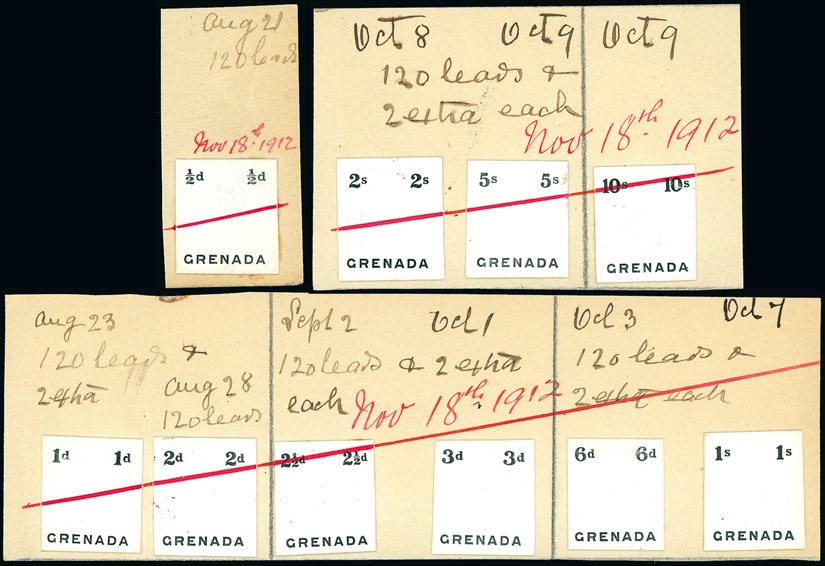 Aug 21
120 leads
Nov 18th 1912
½d ½d
GRENADA
Oct 8 Oct 9 Oct 9
120 leads &
2 extra each
Nov 18th 1912
2s 2s 5s 5s 10s 10s
GRENADA GRENADA GRENADA
Aug 23
120 leads &
2 extra
Aug 28
120 leads
Sept 2 Oct 1
120 leads & 2 extra
each
Nov 18th 1912
Oct 3 Oct 7
120 leads &
2 extra each
1d 1d 2d 2d 2½d 2½d 3d 3d 6d 6d 1s 1s
GRENADA GRENADA GRENADA GRENADA GRENADA GRENADA